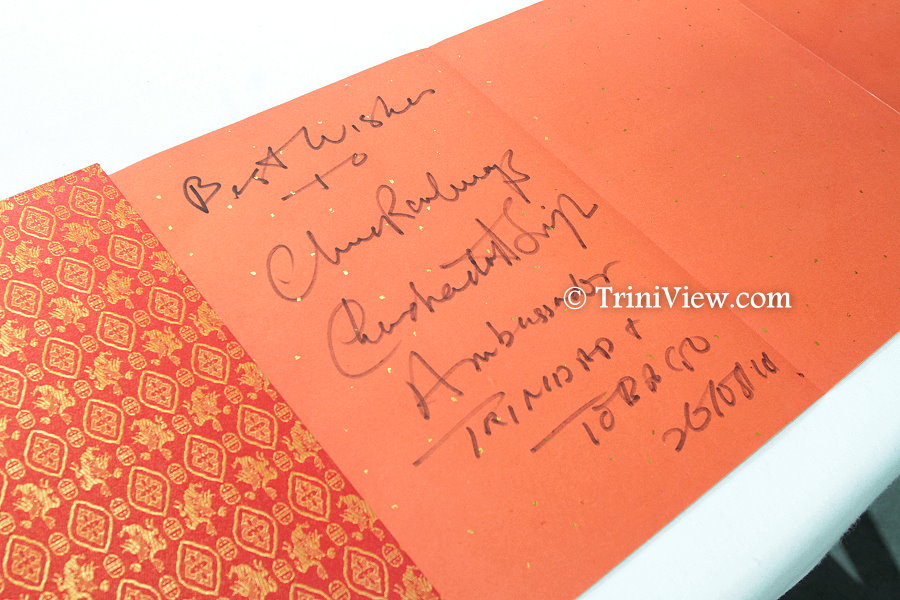 Best Wishes
to
China Railways
Ambassador
TRINIDAD +
TOBAGO
26/08/10
© TriniView.com